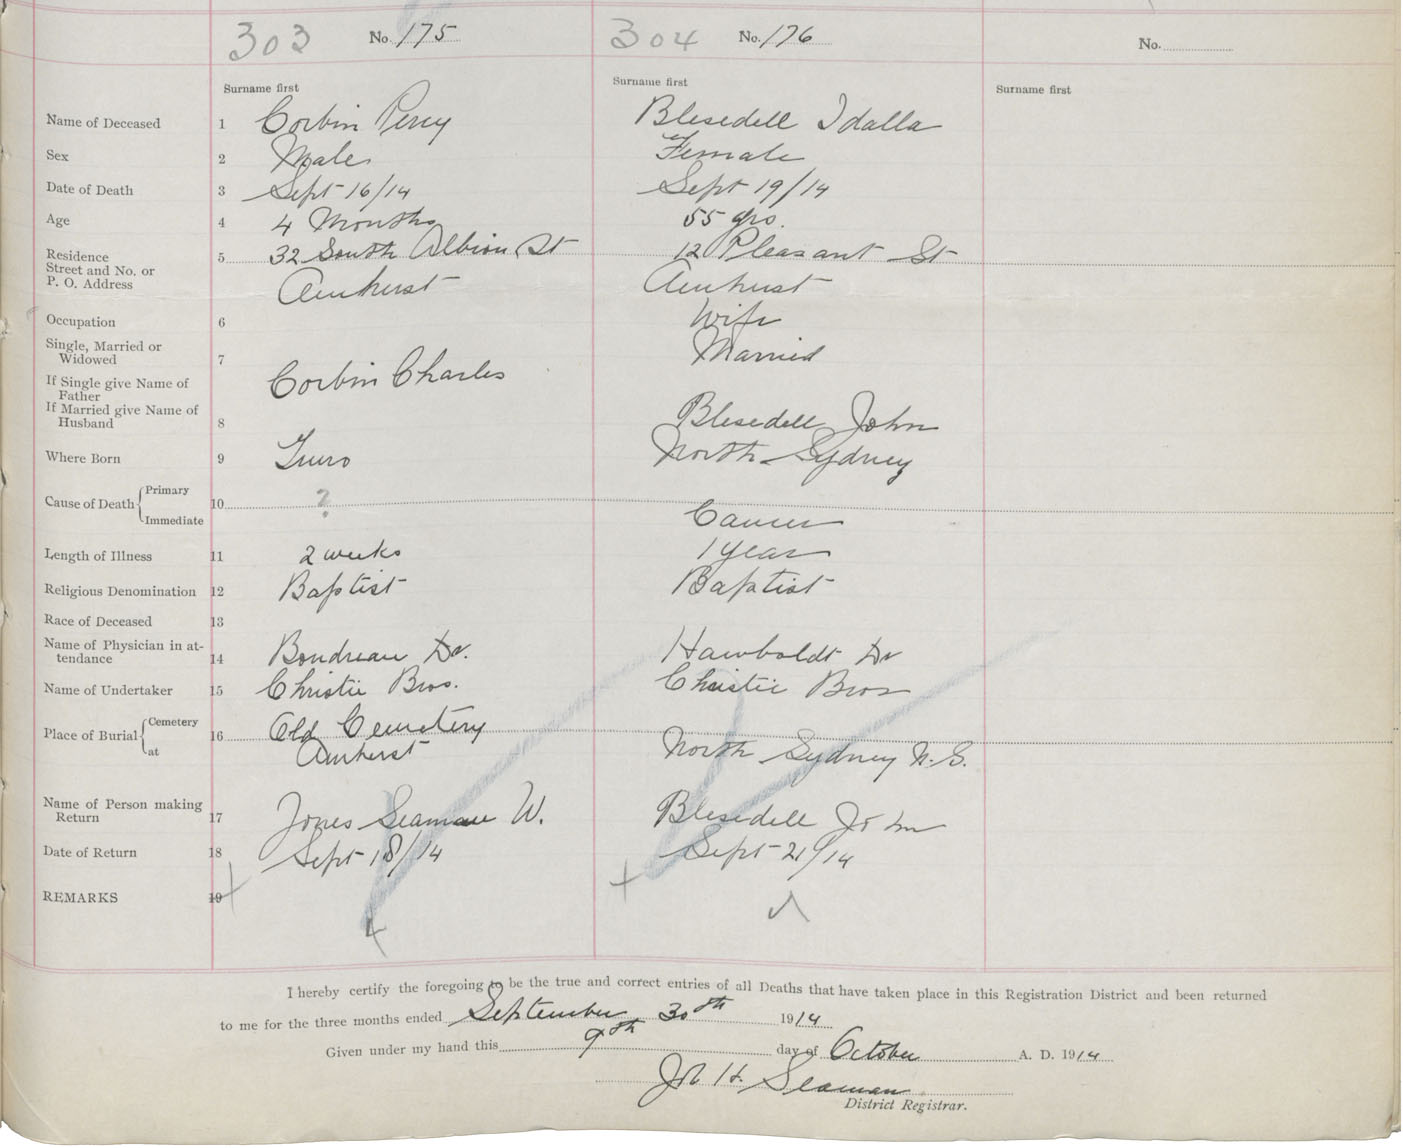 303 No. 175 304 No. 176 No.
Surname first Surname first Surname first
Name of Deceased 1 Corbin Percy Blesedell Idalla
Sex 2 Male Female
Date of Death 3 Sept 16/14 Sept 19/14
Age 4 4 Months 55 yrs
Residence
Street and No. or 5 32 South Albion St 12 Pleasant St
P. O. Address Amherst Amherst
Occupation 6 Wife
Single, Married or
Widowed 7 Married
If Single give Name of Corbin Charles
Father
If Married give Name of
Husband 8 Blesedell John
Where Born 9 Truro North Sydney
Cause of Death Primary
10 ?
Immediate Cancer
Length of Illness 11 2 weeks 1 year
Religious Denomination 12 Baptist Baptist
Race of Deceased 13
Name of Physician in at-
tendance 14 Boudreau Dr. Hawboldt Dr
Name of Undertaker 15 Christie Bros. Christie Bros
Place of Burial Cemetery 16 Old Cemetery
at Amherst North Sydney N.S.
Name of Person making
Return 17 Jones Seaman W. Blesedell John
Date of Return 18 Sept 18/14 Sept 21/14
REMARKS 19
I hereby certify the foregoing to be the true and correct entries of all Deaths that have taken place in this Registration District and been returned
to me for the three months ended September 30th 1914
Given under my hand this 9th day of October A. D. 1914
Job H. Seaman
District Registrar.